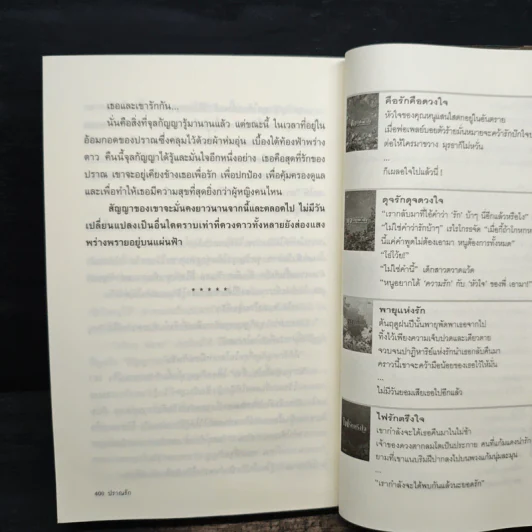 เธอและเขารักกัน...
นั่นคือสิ่งที่จุลกัญญารู้มานานแล้ว แต่ขณะนี้ ในเวลาที่อยู่ใน
อ้อมกอดของปราณซึ่งคลุมไว้ด้วยผ้าห่มอุ่น เบื้องใต้ท้องฟ้าพร่าง
ดาว คืนนี้จุลกัญญาได้รู้และมั่นใจอีกหนึ่งอย่าง เธอคือสุดที่รักของ
ปราณ เขาจะอยู่เคียงข้างเธอเพื่อรัก เพื่อปกป้อง เพื่อคุ้มครองดูแล
และเพื่อทำให้เธอมีความสุขที่สุดยิ่งกว่าผู้หญิงคนไหน
สัญญาของเขาจะมั่นคงยาวนานจากนี้และตลอดไป ไม่มีวัน
เปลี่ยนแปลงเป็นอื่นใดตราบเท่าที่ดวงดาวทั้งหลายยังส่องแสง
พร่างพรายอยู่บนแผ่นฟ้า
* * * * *
400 ปราณรัก
คือรักคือดวงใจ
หัวใจของคุณหนูแสนโสดกอยู่ในอันตราย
เมื่อพ่อเพลย์บอยตัวร้ายมั่นหมายจะคว้ารักปักใจ
ต่อให้ใครมาขวาง มุราก็ไม่หวั่น
...
ก็เผลอใจไปแล้วนี่ !
ดุจรักดุจดวงใจ
"เรากลับมาที่ไอ้คำว่า 'รัก' บ้าๆ นี่อีกแล้วหรือไง"
"ไม่ใช่คำว่ารักบ้าๆ
นี้แค่คำพูดไม่ต้องเอามา หนูต้องการทั้งหมด"
"ไอ้โว้ย!"
"ไม่ใช่คำนี้" เด็กสาวตวาดแว้ด
"หนูอยากได้ 'ความรัก' กับ 'หัวใจ' ของพี่ เอามา!"
พายุแห่งรัก
ต้นฤดูฝนปีนั้นพายุพัดพาเธอจากไป
ทิ้งไว้เพียงความเจ็บปวดและเดียวดาย
จวบจนปาฏิหาริย์แห่งรักนำเธอกลับคืนมา
คราวนี้เขาจะคว้ามือน้อยของเธอไว้ให้มั่น
...
ไม่มีวันยอมเสียเธอไปอีกแล้ว
ไฟรักตรึงใจ
เขากำลังจะได้เธอคืนมาในไม่ช้า
เจ้าของดวงตากลมโตเป็นประกาย คนที่แก้มแดงน่ารัก
ยามที่เขาแนบริมฝีปากลงไปบนพวงแก้มนุ่มละมุน
...
"เรากำลังจะได้พบกันแล้วนะยอดรัก"